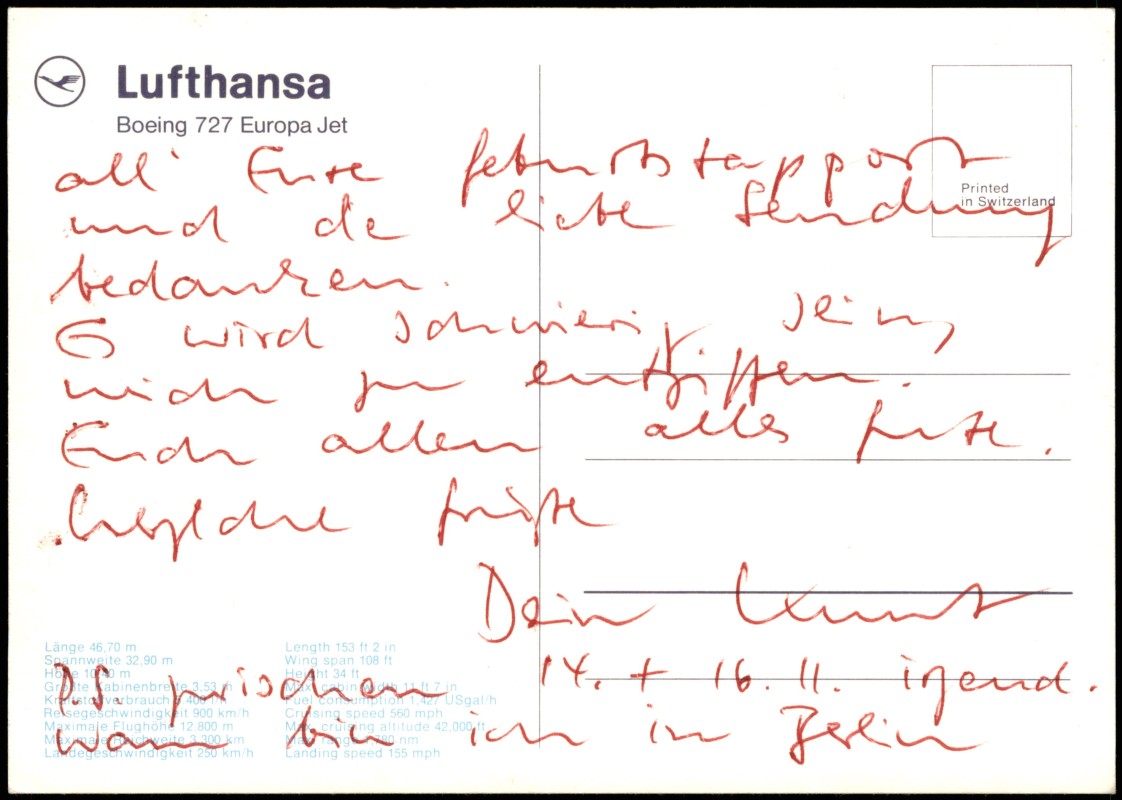 Lufthansa
Boeing 727 Europa Jet
Printed
in Switzerland
all' Eure Geburtstagspost
und die liebe Sendung
bedanken.
Es wird schwierig sein,
mich zu entziffern.
Euch allen alles Gute.
herzliche Grüße
Dein
P.S. zwischen 14. + 16. 11. irgend.
wann bin ich in Berlin
Länge 46,70 m
Spannweite 32,90 m
Größte Kabinenbreite 3,53 m
Reisegeschwindigkeit 900 km/h
Maximale Flughöhe 12.800 m
Maximale Reichweite 3.300 km
Landegeschwindigkeit 250 km/h
Length 153 ft 2 in
Wing span 108 ft
Height 34 ft
Max. cabin width 11 ft 7 in
Fuel consumption 1,427 USgal/h
Cruising speed 560 mph
Max. cruising altitude 42,000 ft
Landing speed 155 mph